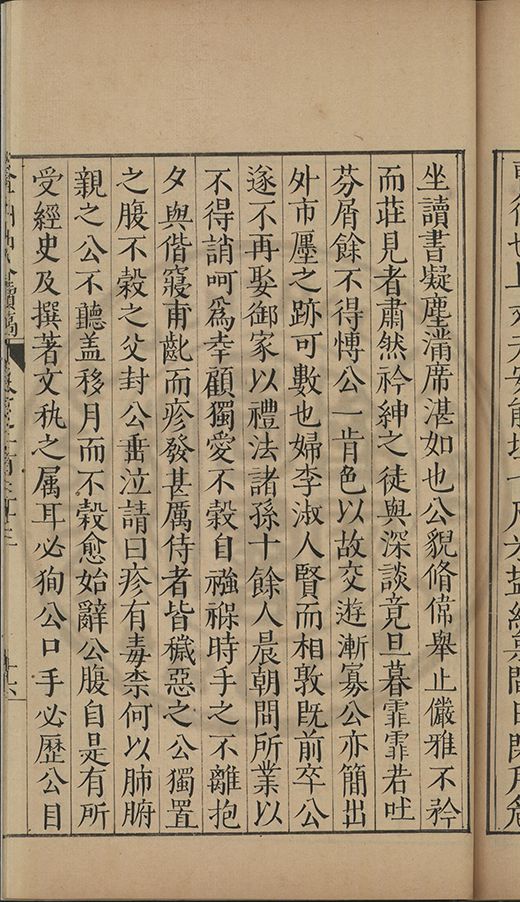 坐讀書凝塵滿席湛如也公貌脩偉舉止儼雅不衿
而莊見者肅然衿紳之徒與深談竟旦暮霏霏若吐
芬屑餘不得慱公一肯色以故交遊漸寡公亦簡出
外市廛之跡可數也婦李淑人賢而相敦既前卒公
遂不再娶御家以禮法諸孫十餘人晨朝問所業以
不得誚呵爲幸顧獨愛不榖自襁褓時手之不離抱
夕與偕寢甫齔而疹發甚厲侍者皆穢惡之公獨置
之腹不榖之父封公垂泣請曰疹有毒柰何以肺腑
親之公不聽盖移月而不榖愈始辭公腹自是有所
受經史及撰著文秇之属耳必狥公口手必歷公目